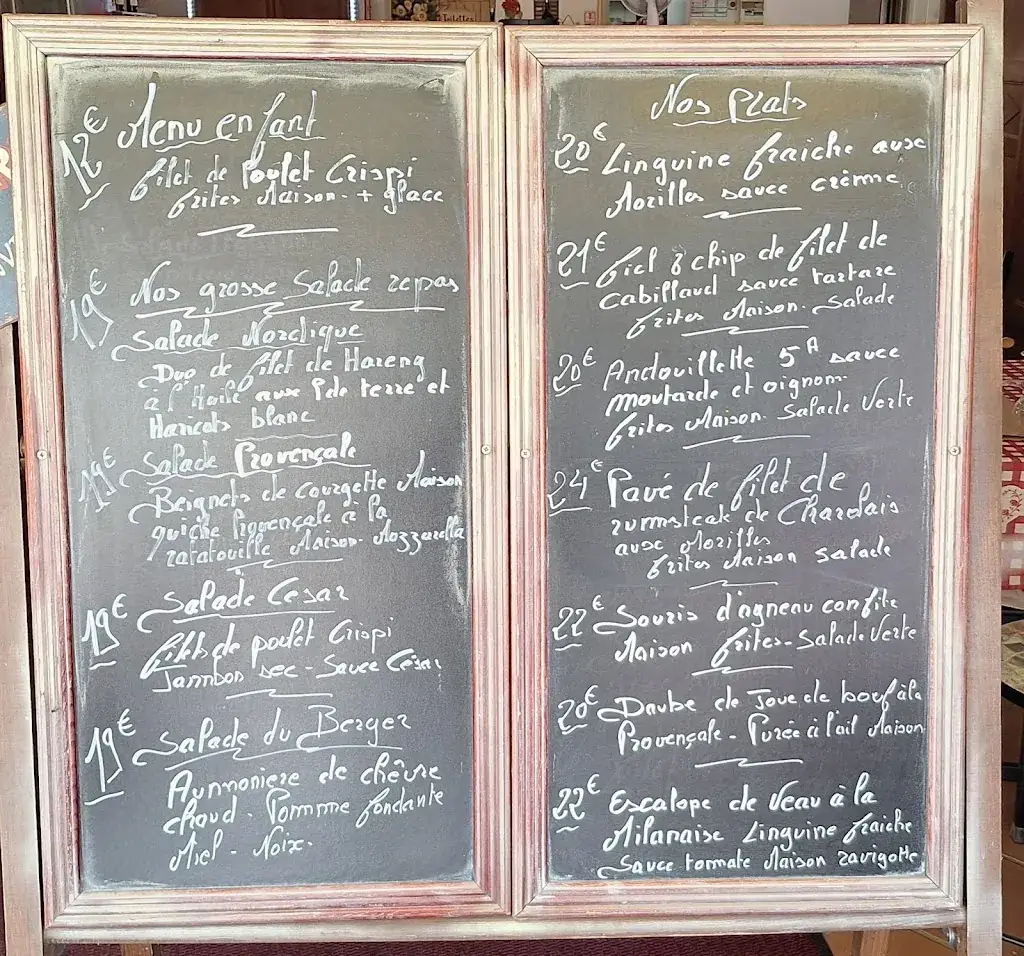 Toilettes
12€ Menu enfant
filet de Poulet Crispi
frites Maison + glace
19€ Nos grosse Salade repas
Salade Nordique
Duo de filet de Hareng
a l'Huile aux P de terre et
Haricots blanc
19€ Salade Provençale
Beignets de courgette Maison
quiche Provençale a la
ratatouille Maison - Mozzarella
19€ Salade César
filets de poulet Crispi
Jambon sec - Sauce César
19€ Salade du Berger
Aumoniere de chêvre
chaud - Pomme fondante
Miel - Noix.
Nos Plats
20€ Linguine fraiche aux
Morilles sauce crème
21€ fich & chip de filet de
cabillaud sauce tartare
frites Maison - Salade
20€ Andouillette 5A sauce
moutarde et oignon
frites Maison - Salade Verte
24€ Pavé de filet de
rumsteak de Charolais
aux Morilles
frites Maison Salade
22€ Souris d'agneau confite
Maison frites - Salade Verte
20€ Daube de Joue de bœuf à la
Provençale - Purée à l'ail Maison
22€ Escalope de Veau à la
Milanaise Linguine fraiche
Sauce tomate Maison ravigotte